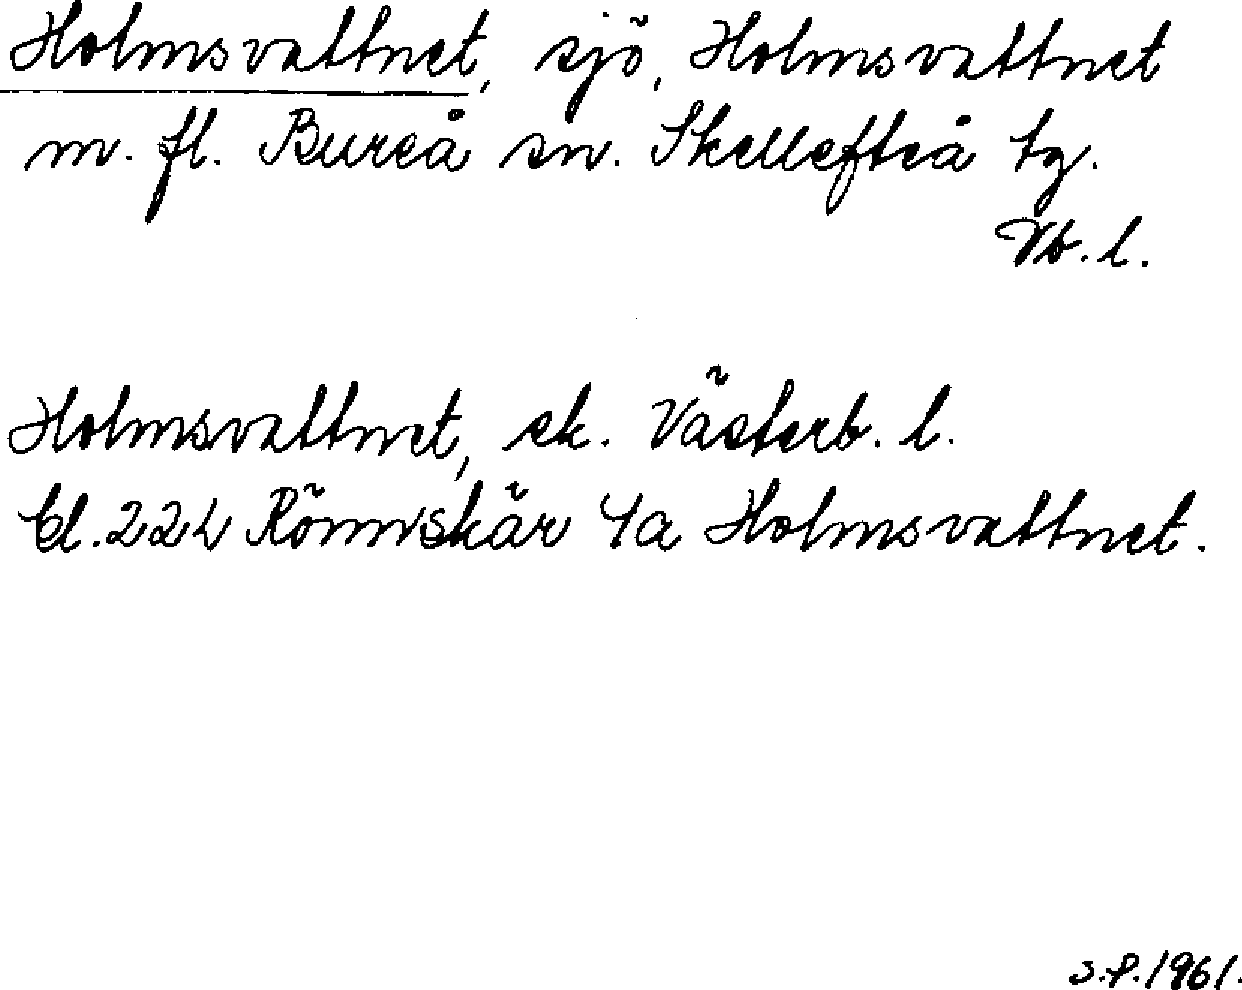 Holmsvattnet, sjö, Holmsvattnet
m. fl. Bureå sn. Skellefteå tg.
Vb. l.
Holmsvattnet, ek. Västerb. l.
Bl. 22 L Rönnskär 4a Holmsvattnet.
S.P. 1961.